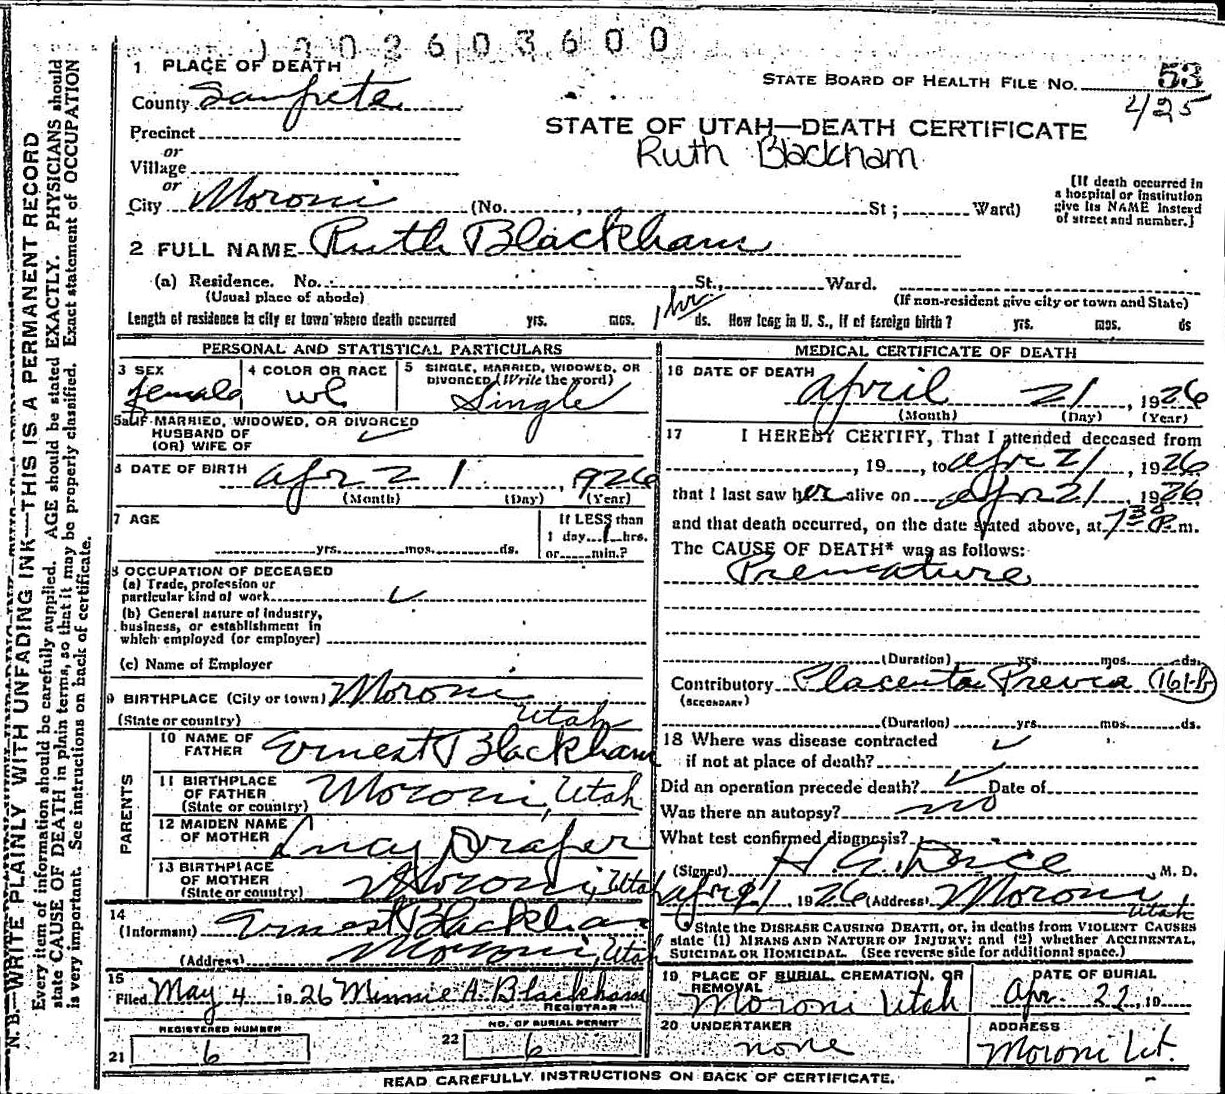 1902603600
1 PLACE OF DEATH
STATE BOARD OF HEALTH FILE NO. 53
County Sanpete
425
Precinct
STATE OF UTAH—DEATH CERTIFICATE
or
Ruth Blackham
Village
or
[If death occurred in a hospital or institution give its NAME instead of street and number.]
City Moroni (No. , St; Ward)
2 FULL NAME Ruth Blackham
(a) Residence. No. St., Ward.
(Usual place of abode) (If non-resident give city or town and State)
Length of residence in city or town where death occurred yrs. mos. 1 hr ds. How long in U. S., if of foreign birth? yrs. mos. ds
PERSONAL AND STATISTICAL PARTICULARS
3 SEX female
4 COLOR OR RACE wh
5 SINGLE, MARRIED, WIDOWED, OR DIVORCED (Write the word) Single
5a IF MARRIED, WIDOWED, OR DIVORCED
HUSBAND OF
(OR) WIFE OF
6 DATE OF BIRTH Apr 21, 1926
(Month) (Day) (Year)
7 AGE yrs. mos. ds.
If LESS than
1 day 1 hrs.
or min.?
8 OCCUPATION OF DECEASED
(a) Trade, profession or
particular kind of work
(b) General nature of industry,
business, or establishment in
which employed (or employer)
(c) Name of Employer
9 BIRTHPLACE (City or town) Moroni
(State or country) Utah
PARENTS
10 NAME OF FATHER Ernest Blackham
11 BIRTHPLACE OF FATHER (State or country) Moroni, Utah
12 MAIDEN NAME OF MOTHER Lucy Draper
13 BIRTHPLACE OF MOTHER (State or country) Moroni, Utah
14
(Informant) Ernest Blackham
(Address) Moroni, Utah
15
Filed May 4 1926 Minnie A. Blackham
REGISTRAR
REGISTERED NUMBER
21 6
NO. OF BURIAL PERMIT
22 6
MEDICAL CERTIFICATE OF DEATH
16 DATE OF DEATH April 21, 1926
(Month) (Day) (Year)
17 I HEREBY CERTIFY, That I attended deceased from
, 19 , to Apr 21, 1926
that I last saw her alive on Apr 21, 1926
and that death occurred, on the date stated above, at 7 30 P. m.
The CAUSE OF DEATH* was as follows:
Premature
(Duration) yrs. mos. ds.
Contributory Placenta Previa 161-b
(SECONDARY)
(Duration) yrs. mos. ds.
18 Where was disease contracted
if not at place of death?
Did an operation precede death? Date of
Was there an autopsy? no
What test confirmed diagnosis?
(Signed) , M. D.
1926 (Address) Moroni
Utah
State the DISEASE CAUSING DEATH, or, in deaths from VIOLENT CAUSES
state (1) MEANS AND NATURE OF INJURY; and (2) whether ACCIDENTAL,
SUICIDAL OR HOMICIDAL. (See reverse side for additional space.)
19 PLACE OF BURIAL, CREMATION, OR REMOVAL
Moroni Utah
DATE OF BURIAL
Apr. 22, 19
20 UNDERTAKER
none
ADDRESS
Moroni Ut.
READ CAREFULLY INSTRUCTIONS ON BACK OF CERTIFICATE.
N. B.—WRITE PLAINLY WITH UNFADING INK—THIS IS A PERMANENT RECORD
Every item of information should be carefully supplied. AGE should be stated EXACTLY. PHYSICIANS should
state CAUSE OF DEATH in plain terms, so that it may be properly classified. Exact statement of OCCUPATION
is very important. See instructions on back of certificate.